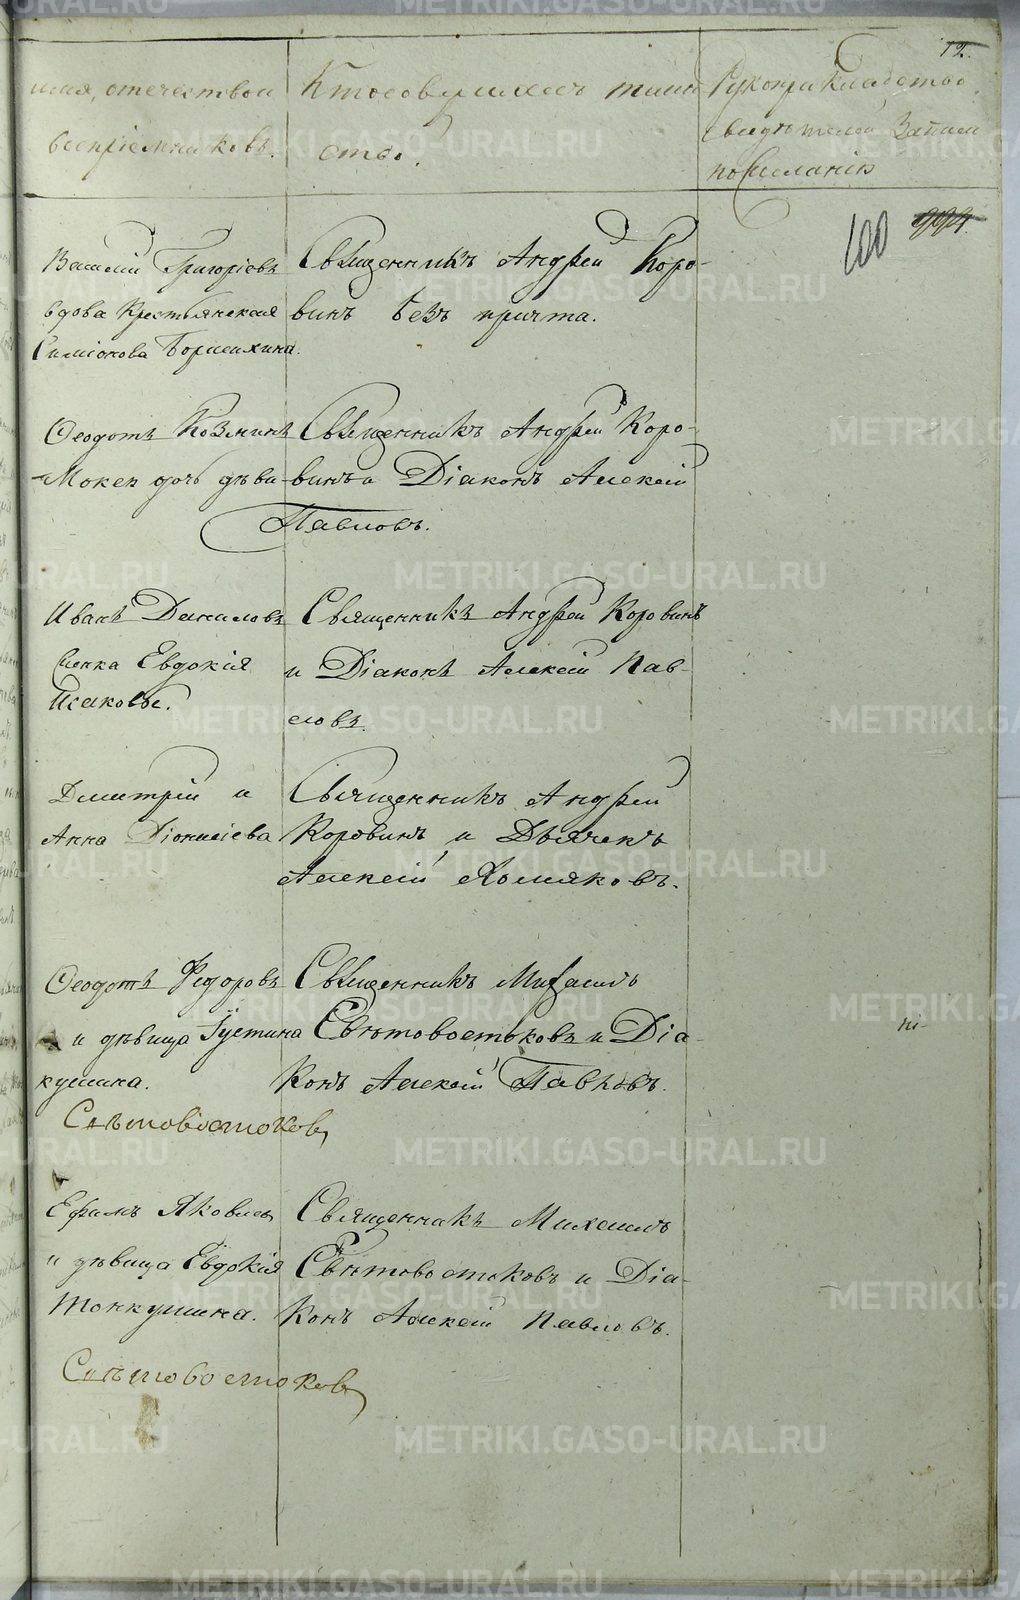 12.
имя, отечество и
воспріемниковъ.
Кто совершалъ таин
ство.
Рукоприкладство
свидѣтелей записи
по желанію
100 994
Василій Григорьевъ
вдова Крестьянская
Симіонова
Священникъ Андрей Коро-
винъ безъ причта.
Ѳеодотъ Козминъ
Мокея дочь дѣви-
Священникъ Андрей Коро-
винъ и Діаконъ Алексей
Павловъ.
Иванъ Даниловъ
Евдокія
Исакова.
Священникъ Андрей Коровинъ
и Діаконъ Алексей Пав-
ловъ.
Димитрій и
Анна Діонисіева
Священникъ Андрей
Коровинъ и Дьячекъ
Алексей Хомяковъ.
Ѳеодотъ Федоровъ
и дѣвица Іустина
кушина.
Священникъ Михаилъ
Свѣтовостоковъ и Діа-
конъ Алексей Павловъ.
Свѣтовостоковъ
Ефимъ Яковлевъ
и дѣвица Евдокія
Тонкушина.
Священникъ Михаилъ
Свѣтовостоковъ и Діа-
конъ Алексей Павловъ.
Свѣтовостоковъ
METRIKI.GASO-URAL.RU